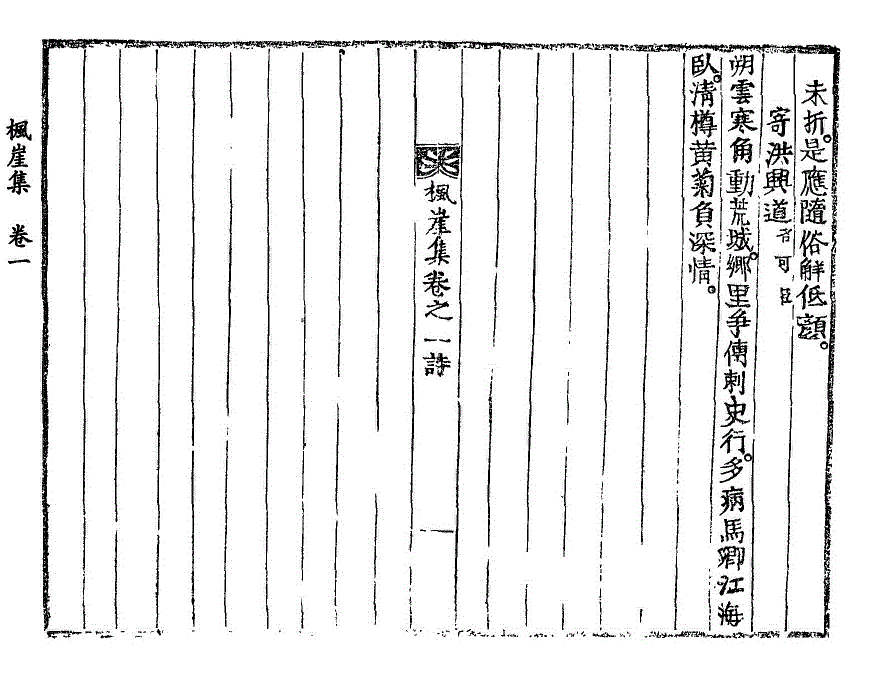 未折。是應隨俗解低顔。
寄洪興道名可臣
朔雲寒角動荒城。鄉里爭傳刺史行。多病馬卿江海
臥。清樽黄菊負深情。
楓崖集卷之一詩
楓崖集 卷一